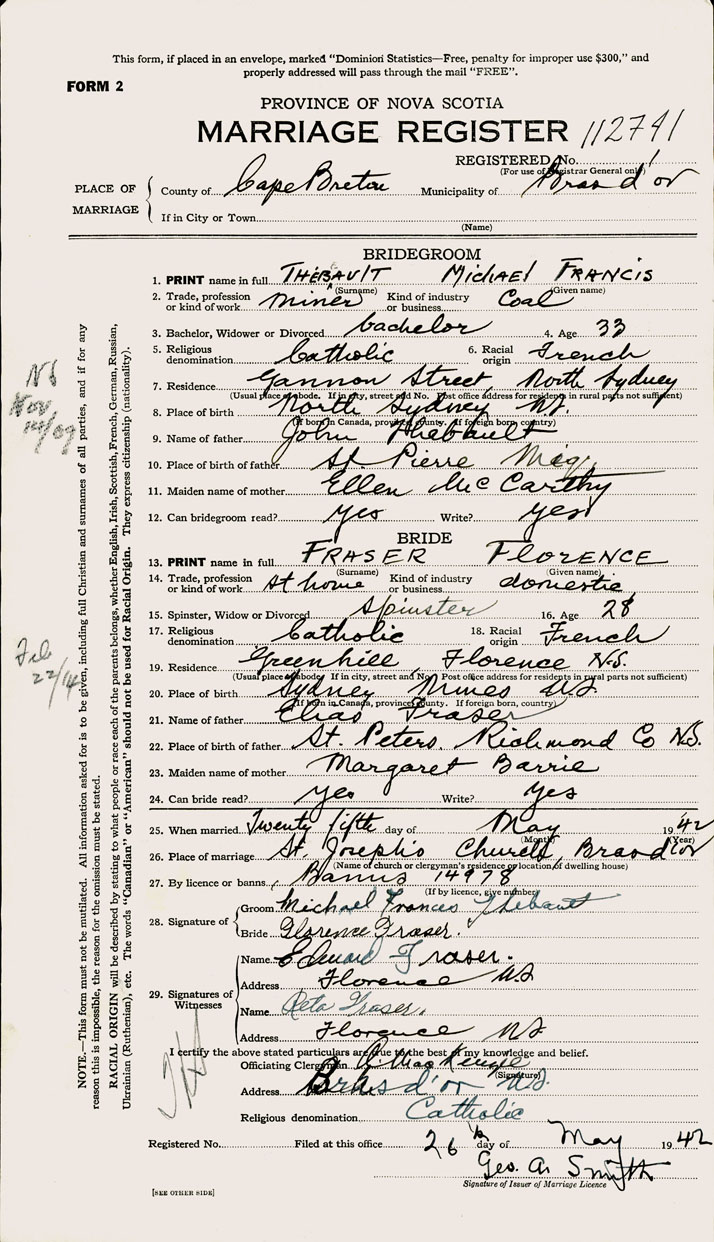 This form, if placed in an envelope, marked "Dominion Statistics—Free, penalty for improper use $300," and
properly addressed will pass through the mail "FREE".
FORM 2
PROVINCE OF NOVA SCOTIA
MARRIAGE REGISTER 112741
REGISTERED No.
(For use of Registrar General only)
PLACE OF MARRIAGE
County of Cape Breton Municipality of Bras d'or
If in City or Town
(Name)
BRIDEGROOM
1. PRINT name in full THEBAULT MICHAEL FRANCIS
(Surname) (Given name)
2. Trade, profession or kind of work miner Kind of industry or business Coal
3. Bachelor, Widower or Divorced bachelor 4. Age 33
5. Religious denomination Catholic 6. Racial origin French
7. Residence Gannon Street, North Sydney
(Usual place of abode. If in city, street and No. Post office address for residents in rural parts not sufficient)
8. Place of birth North Sydney N.S.
(If born in Canada, province, county. If foreign born, country)
9. Name of father John Thebault
10. Place of birth of father St Pierre Miq.
11. Maiden name of mother Ellen McCarthy
12. Can bridegroom read? yes Write? yes
BRIDE
13. PRINT name in full FRASER FLORENCE
(Surname) (Given name)
14. Trade, profession or kind of work at home Kind of industry or business domestic
15. Spinster, Widow or Divorced Spinster 16. Age 28
17. Religious denomination Catholic 18. Racial origin French
19. Residence Greenhill, Florence N.S.
(Usual place of abode. If in city, street and No. Post office address for residents in rural parts not sufficient)
20. Place of birth Sydney Mines N.S.
(If born in Canada, province, county. If foreign born, country)
21. Name of father Elias Fraser
22. Place of birth of father St. Peters, Richmond Co N.S.
23. Maiden name of mother Margaret Barrie
24. Can bride read? yes Write? yes
25. When married Twenty fifth day of May 1942
(Month) (Year)
26. Place of marriage St. Joseph's Church, Bras d'or
(Name of church or clergyman's residence or location of dwelling house)
27. By licence or banns Banns 14978
(If by licence, give number)
28. Signature of
Groom Michael Francis Thebault
Bride Florence Fraser.
29. Signatures of Witnesses
Name Edward Fraser.
Address Florence N.S
Name Reta Fraser.
Address Florence N.S
I certify the above stated particulars are true to the best of my knowledge and belief.
Officiating Clergyman
(Signature)
Address Bras d'or N.S.
Religious denomination Catholic
Registered No. Filed at this office 26th day of May 1942
Geo. A. Smith
Signature of Issuer of Marriage Licence
[SEE OTHER SIDE]
NOTE.—This form must not be mutilated. All information asked for is to be given, including full Christian and surnames of all parties, and if for any
reason this is impossible, the reason for the omission must be stated.
RACIAL ORIGIN will be described by stating to what people or race each of the parents belongs, whether English, Irish, Scottish, French, German, Russian,
Ukrainian (Ruthenian), etc. The words "Canadian" or "American" should not be used for Racial Origin. They express citizenship (nationality).
NS
Nov.
14/09
Feb
22/14